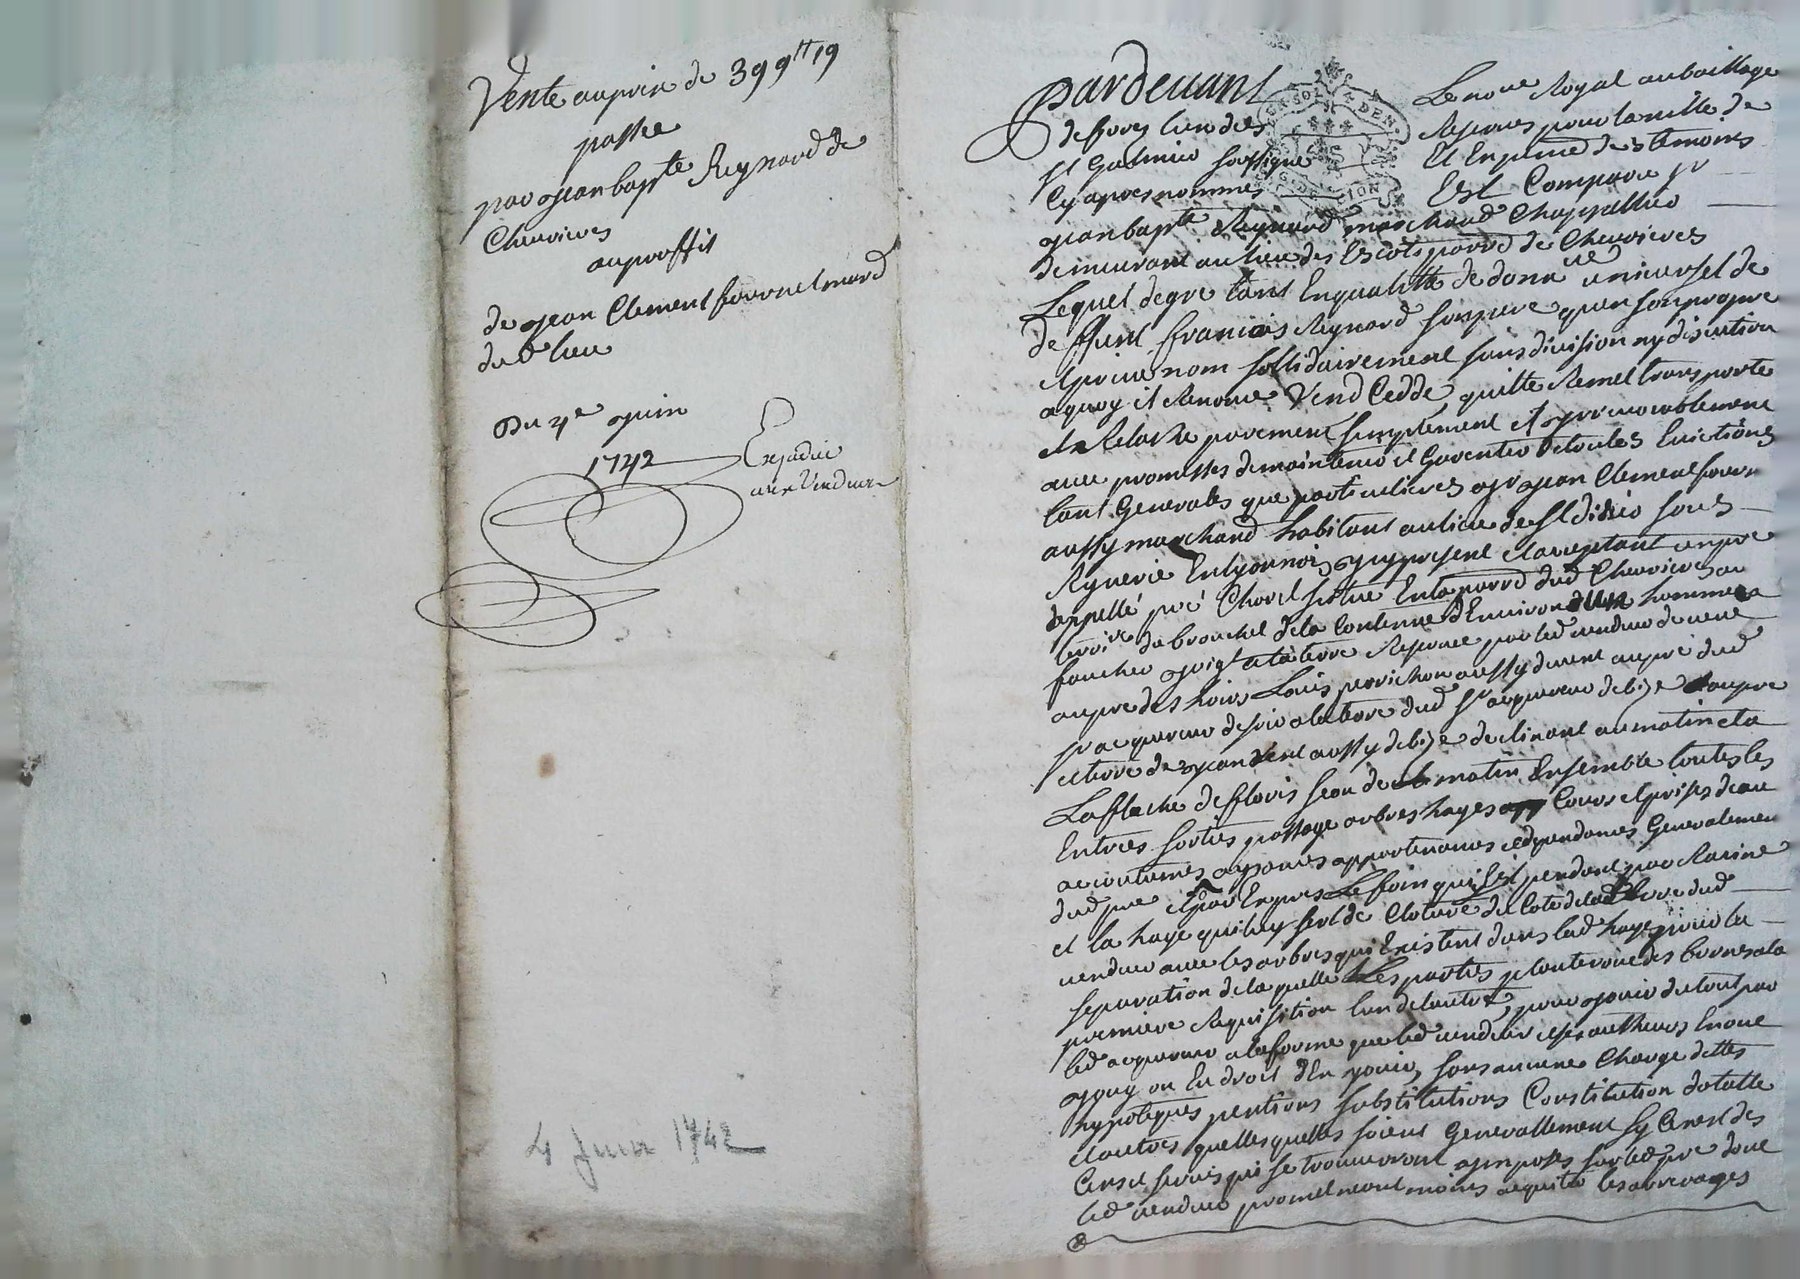 Vente au prix de 399tt 19
passée
par Jean bapte Reynard de
Chevrieres
au proffit
de Jean Clement fournel mard
dud lieu
Du 4e Juin
1742
Expédié
aux Vendeur
4 Juin 1742
Pardevant Le nore Royal au baillage
de forez Reserves pour la ville de
st Galmier soussigné Et En psence de temoins
Cy apres nommes Est Comparu sr
Jean bapte Reynard marchand Chappellier
demeurant au lieu des Escots parr de Chevrieres
Lequel de gre tant En qualitté de donnre universel de
deffunt francois Reynard son pere qu'en son propre
et prive nom sollidairement sans division ny discution
a quoy il Renonce Vend Cedde, quitte Remet transporte
et Relache purement simplement et irrevocablement
avec promesses de maintenir et Garentir de toutes Evictions
tant Generales que particulieres a sr Jean Clement fourn
aussy marchand habitant au lieu de st didier sous
Rynerie En lyonnois icy present et acceptant un pre
appellé pré Chovel situe En la parr dud Chevrieres au
terroir du brouchet de la Contenue d'Environ d'un hommée a
faucher joigt a la terre Reservee par led vendeur de vent
au pre des hoirs Louis perrichon aussy de vent au pre dud
sr acquereur de soir a la terre dud sr acquereur de bize au pre
et terre de Jean aussy de bize declinant au matin et a
La de matin Ensemble toutes les
Entrees sorties passage arbres hayes Cours et prises d'eau
accoutumes aysances appartenances et dependances Generalement
dud pre et par Expres Le foin qui Est pendant par Racine
et la haye qui luy sert de Cloture du Cote de la terre dud
vendeur avec les arbres qui Existent dans lad haye pour la
separation de la quelle Les parties planteront des bornes a la
premiere Requisition l'un de l'autre, pour Jouir du tout par
led acquereur a la forme que led vendeur et ses autheurs En ont
Jouy ou Eu droit d'En jouir, sans aucunes Charge dettes
hypoteques pentions substitutions Constitution dotalle
et autres quelles quelles soient Generallement sy Ce n'est des
Cens et servis qui se trouveront imposes sur led pre dont
led vendeur promet neant moins acquiter les arrerages